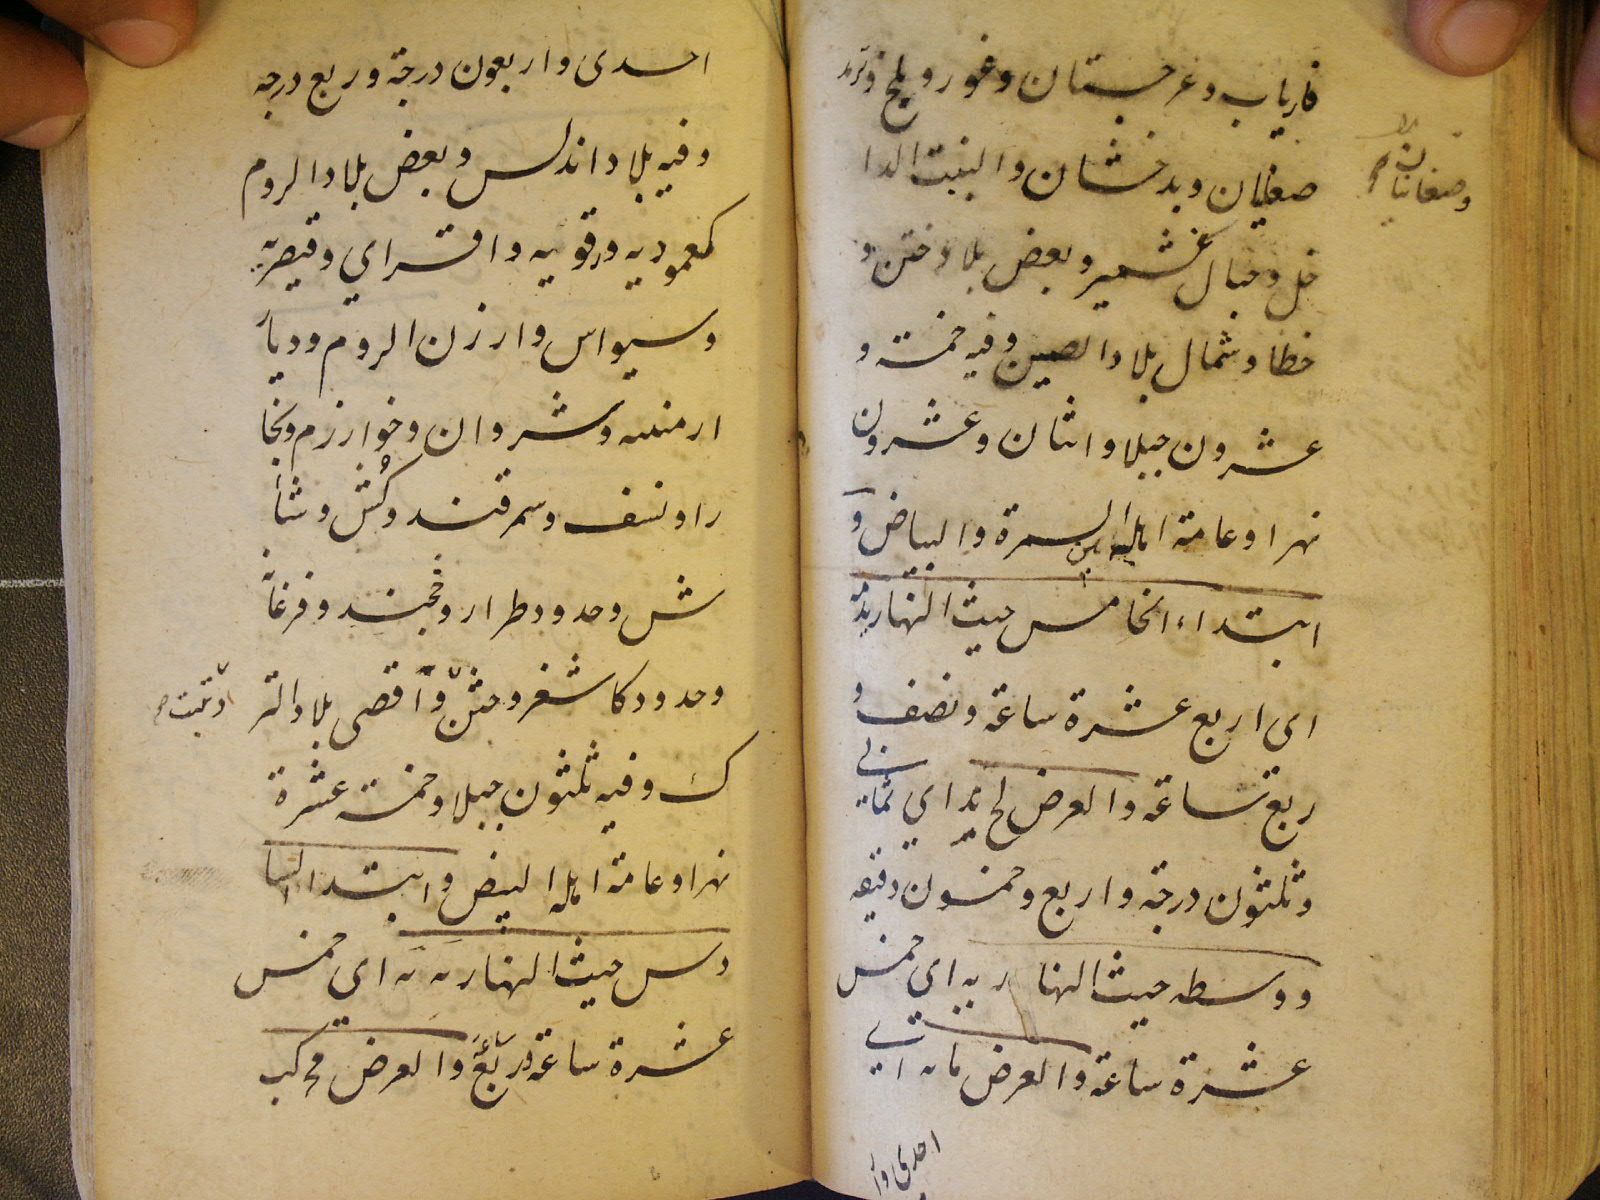 فارياب وغرجستان وغور وبلخ وترمذ
صغانيان وبدخشان والتبت الدا
خل وجبال كشمير وبعض بلاد ختن و
خطا وشمال بلاد الصين وفيه خمسة و
عشرون جبلا واثنان وعشرون
نهرا وعامة اهله بين السمرة والبياض و
ابتداء الخامس حيث النهار يد مه
اى اربع عشرة ساعة ونصف و
ربع ساعة والعرض لح ند اي ثماني
وثلثون درجة واربع وخمسون دقيقه
ووسطه حيث النهار يه اي خمس
عشرة ساعة والعرض ما يه اي
احدى وا
وصغانيان
احدى واربعون درجة وربع درجه
وفيه بلاد اندلس وبعض بلاد الروم
كعموديه وقونيه واقسراي وقيصريه
وسيواس وارزن الروم وديا
ارمنيه وشروان وخوارزم وبخا
را ونسف وسمرقند وكش وشا
ش وحدود طرار وخجند وفرغانه
وحدود كاشغر وختن واقصى بلاد التر
وتبت
ك وفيه ثلثون جبلا وخمسة عشرة
نهرا وعامة اهله البيض وابتدا السا
دس حيث النهار يه يه اي خمس
عشرة ساعة وربع والعرض مح كب